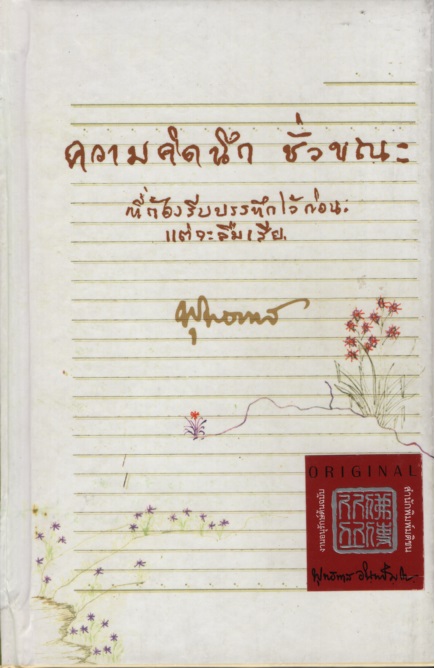 ความคิดนึก ชั่วขณะ
ที่ต้องรีบบรรทึกไว้ก่อน
แต่จะลืมเสีย.
พุทธทาส
ORIGINAL
สำนักพิมพ์มติชน
พุทธทาส อินทปัญโญ